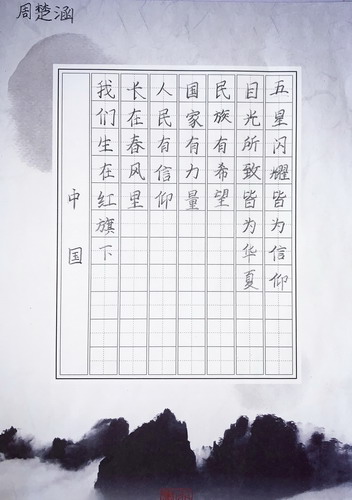 周楚涵
中国
我们生在红旗下
长在春风里
人民有信仰
国家有力量
民族有希望
目光所致皆为华夏
五星闪耀皆为信仰